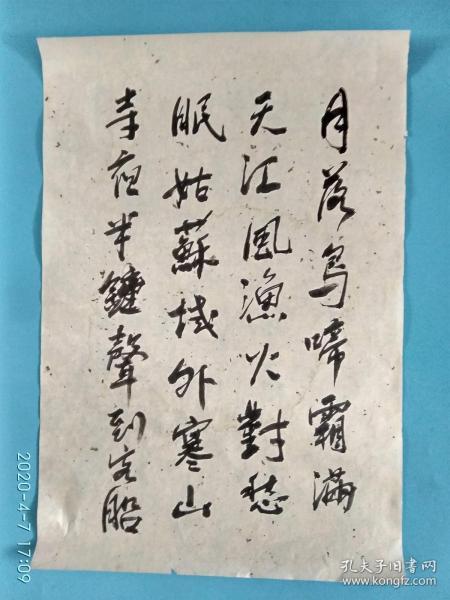 月落烏啼霜滿
天江風漁火對愁
眠姑蘇城外寒山
寺夜半鐘聲到客船
2020-4-7 17:09
孔夫子旧书网
www.kongfz.com